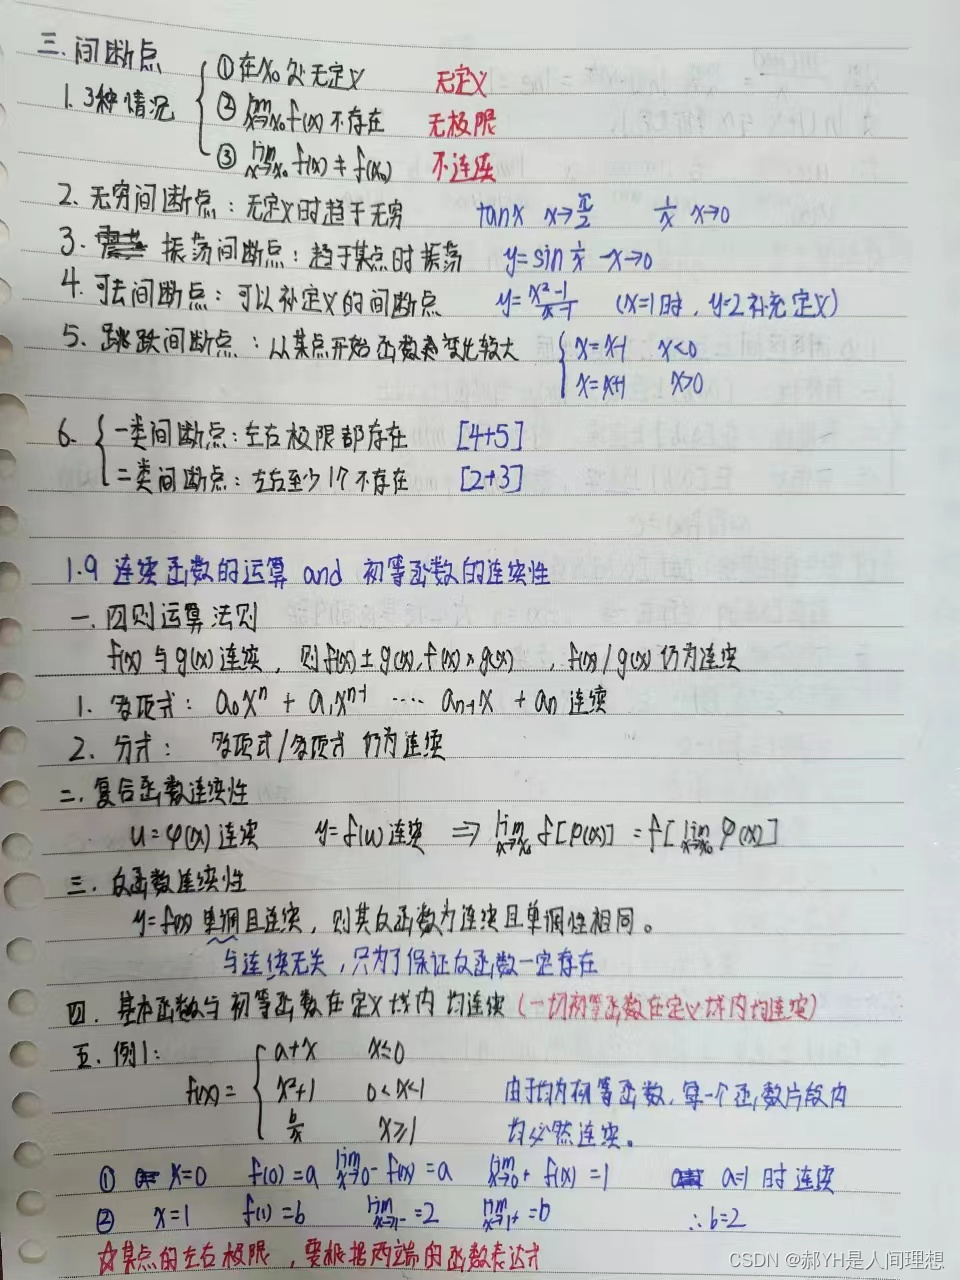 三.间断点
1.3种情况
①在x₀处无定义 无定义
②lim x→x₀ f(x)不存在 无极限
③lim x→x₀ f(x)≠f(x₀) 不连续
2.无穷间断点：无定义时趋于无穷 tanx x→π/2 1/x x→0
3.振荡间断点：趋于某点时振荡 y=sin 1/x x→0
4.可去间断点：可以补定义的间断点 y=x²-1/x-1 (x=1时，y=2补充定义)
5.跳跃间断点：从某点开始函数变化较大 x=x-1 x<0
x=x+1 x>0
6.一类间断点：左右极限都存在 [4+5]
二类间断点：左右至少1个不存在 [2+3]
1.9 连续函数的运算 and 初等函数的连续性
一.四则运算法则
f(x)与g(x)连续，则f(x)±g(x),f(x)×g(x)，f(x)/g(x)仍为连续
1.多项式：a₀xⁿ + a₁xⁿ⁻¹ ···· aₙ₋₁x + aₙ 连续
2.分式：多项式/多项式 仍为连续
二.复合函数连续性
u=φ(x)连续 y=f(u)连续 ⇒ lim x→x₀ f[φ(x)] = f[lim x→x₀ φ(x)]
三.反函数连续性
y=f(x)单调且连续，则其反函数为连续且单调性相同。
与连续无关，只为了保证反函数一定存在
四.基本函数与初等函数在定义域内均连续(一切初等函数在定义域内均连续)
五.例1：
f(x)= a+x x≤0
x²+1 0<x<1 由于均为初等函数，每一个函数片段内
b/x x≥1 均必然连续。
① x=0 f(0)=a lim x→0⁻ f(x)=a lim x→0⁺ f(x)=1 a=1时连续
② x=1 f(1)=b lim x→1⁻ =2 lim x→1⁺ =b ∴b=2
☆某点的左右极限，要根据两端的函数表达式
CSDN @郝YH是人间理想